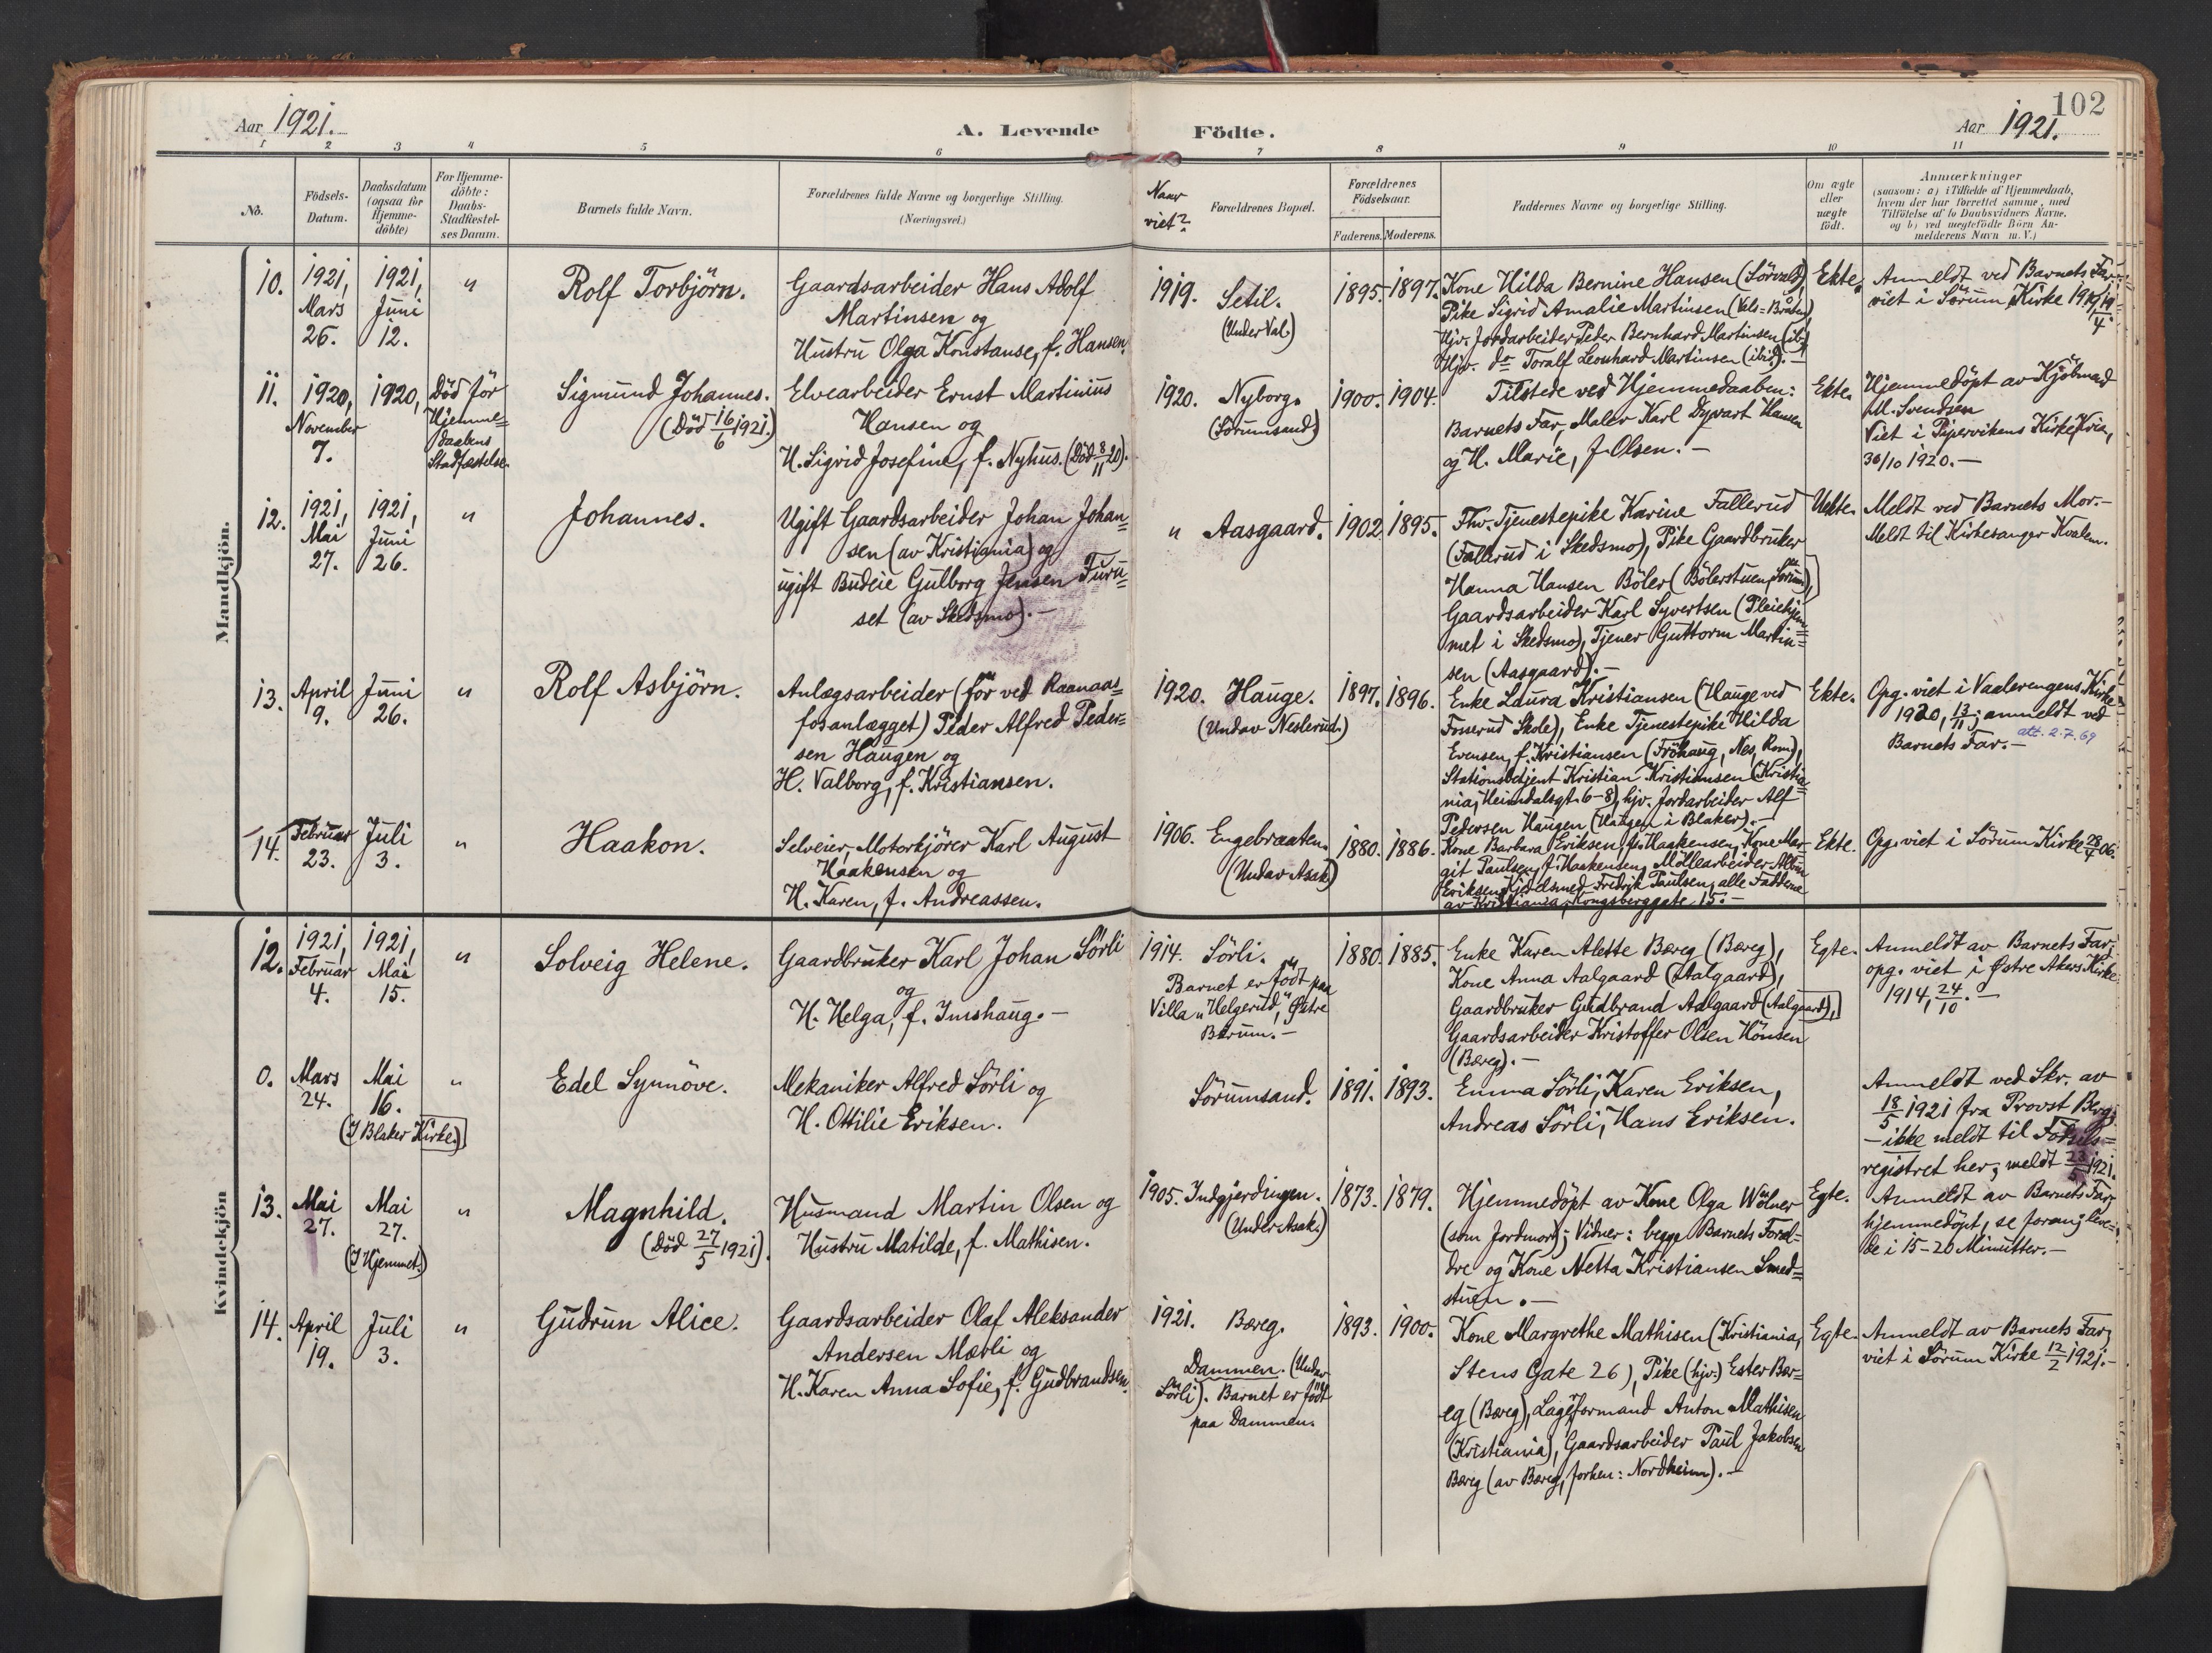 102
Aar 1921.
A. Levende Födte.
Aar 1921.
1 2 3 4 5 6 7 8 9 10 11
No.
Födsels-
Datum.
Daabsdatum
(ogsaa for
Hjemme-
döbte)
For Hjemme-
döbte:
Daabs-
Stadfæstel-
ses Datum.
Barnets fulde Navn.
Forældrenes fulde Navne og borgerlige Stilling.
(Næringsvei.)
Naar
viet?
Forældrenes Bopæl.
Forældrenes
Födselsaar.
Faderens. Moderens.
Faddernes Navne og borgerlige Stilling.
Om ægte
eller
uægte
födt.
Anmærkninger
(saasom: a) i Tilfælde af Hjemmedaab,
hvem der har forrettet samme, med
Tilföielse af to Daabsvidners Navne,
og b) ved uægtefödte Börn An-
melderens Navn m. V.)
Mandkjön.
10.
1921,
Mars
26.
1921,
Juni
12.
"
Rolf Torbjörn.
Gaardsarbeider Hans Adolf
Martinsen og
Hustru Olga Konstanse, f. Hansen.
1919.
Setil.
(Under Val.)
1895. 1897.
Kone Hilda Bernine Hansen (Sörvald),
Pike Sigrid Amalie Martinsen (Vals=Bråten),
Hjv. Jordarbeider Peder Bernhard Martinsen (ib.)
Hjv. do Toralf Leonhard Martinsen (ibid.). —
Ekte.
Anmeldt ved Barnets Far;
viet i Sörum Kirke 1919, 19/4.
11.
1920,
November
7.
1920,
Död för
Hjemme=
daabens
Stadfæstelse.
Sigmund Johannes.
(Död 16/6 1921.)
Elvearbeider Ernst Martinius
Hansen og
H. Sigrid Josefine, f. Nyhus. (Död 8/11 20).
1920.
Nyborg.
(Sörumsand)
1900. 1904.
Tilstede ved Hjemmedaaben:
Barnets Far, Maler Karl Dyvart Hansen
og H. Marie, f. Olsen. —
Ekte.
Hjemmedöpt av Kjöbmad
M. Svendsen
Viet i Pipervikens Kirke, Kria,
30/10 1920. —
12.
1921,
Mai
27.
1921,
Juni
26.
"
Johannes.
Ugift Gaardsarbeider Johan Johan=
sen (av Kristiania) og
ugift Budeie Gulborg Jensen Furu=
set (av Skedsmo). —
"
Aasgaard.
1902. 1895.
Fhv. Tjenestepike Karine Fallerud
(Fallerud i Skedsmo), Pike Gaardbruker
Hanna Hansen Böler (Bölerstuen, Sörum),
Gaardsarbeider Karl Syvertsen (Pleiehjem=
met i Skedsmo), Tjener Guttorm Martin=
sen (Aasgaard). —
Uekte.
Meldt ved Barnets Mor. —
Meldt til Kirkesanger Kvalem.
13.
April
9.
Juni
26.
"
Rolf Asbjörn.
Anlægsarbeider (för ved Raanaas=
fosanlægget) Peder Alfred Peder=
sen Haugen og
H. Valborg, f. Kristiansen.
1920.
Hauge.
(Undav Neslerud.)
1897. 1896.
Enke Laura Kristiansen (Hauge ved
Fosserud Skole), Enke Tjenestepike Hilda
Evensen, f. Kristiansen (Fröhaug, Nes, Rom),
Stationsbetjent Kristian Kristiansen (Kristia=
nia, Heimdalsgt. 6-8), hjv. Jordarbeider Alf
Pedersen Haugen (Haugen i Blaker). —
Ekte.
Opg. viet i Vaalerengens Kirke
1920, 13/11; anmeldt ved
Barnets Far. —
att. 2.7.69
14.
Februar
23.
Juli
3.
"
Haakon.
Selveier, Motorkjörer Karl August
Haakensen og
H. Karen, f. Andreassen.
1906.
Engebraaten.
(Undav Asak)
1880. 1886.
Kone Barbara Eriksen, f. Haakensen, Kone Mar=
git Paulsen, f. Haakensen, Möllearbeider Albin
Eriksen, Kjedelsmed Fredrik Paulsen, alle Faddene
av Kristiania, Kongsberggate 15. —
Ekte.
Opg. viet i Sörum Kirke 28/4 06.
Kvindekjön
12.
1921,
Februar
4.
1921,
Mai
15.
"
Solveig Helene.
Gaardbruker Karl Johan Sörli
og
H. Helga, f. Imshaug. —
1914.
Sörli.
Barnet er födt paa
Villa "Helgerud", Östre
Bærum. —
1880. 1885.
Enke Karen Alette Bæreg (Bæreg),
Kone Anna Aalgaard (Aalgaard),
Gaardbruker Gudbrand Aalgaard (Aalgaard),
Gaardsarbeider Kristoffer Olsen Hönsen
(Bæreg). —
Egte.
Anmeldt av Barnets Far;
opg. viet i Østre Akers Kirke
1914, 24/10. —
0.
Mars
24.
Mai
16.
(I Blaker Kirke.)
"
Edel Synnöve.
Mekaniker Alfred Sörli og
H. Ottilie Eriksen.
Sörumsand.
1891. 1893.
Emma Sörli, Karen Eriksen,
Andreas Sörli, Hans Eriksen.
Anmeldt ved Skr. av
18/5 1921 fra Provst Berg;
— ikke meldt til Födsels=
registret her; meldt 23/5 1921.
13.
Mai
27.
Mai
27.
(I Hjemmet.)
"
Magnhild.
(Död 27/5 1921).
Husmand Martin Olsen og
Hustru Matilde, f. Mathisen.
1905.
Indgjerdingen.
(Under Asak.)
1873. 1879.
Hjemmedöpt av Kone Olga Wölner
(som Jordmor); Vidner: begge Barnets Foræl=
dre og Kone Netta Kristiansen Smed=
stuen. —
Egte.
Anmeldt av Barnets Far;
hjemmedöpt, se foran; leve=
de i 15-20 Minutter. —
14.
April
19.
Juli
3.
"
Gudrun Alice.
Gaardsarbeider Olaf Aleksander
Andersen Mærli og
H. Karen Anna Sofie, f. Gudbrandsen.
1921.
Bæreg.
Dammen. (Under
Sörli). Barnet er födt
paa Dammen.
1893. 1900.
Kone Margrethe Mathisen (Kristiania,
Stens Gate 26), Pike (hjv.) Ester Bær=
eg (Bæreg), Lagerformand Anton Mathisen
(Kristiania), Gaardsarbeider Paul Jakobsen
Bæreg (av Bæreg, forhen: Nordheim). —
Egte.
Anmeldt av Barnets Far;
viet i Sörum Kirke 12/2 1921. —